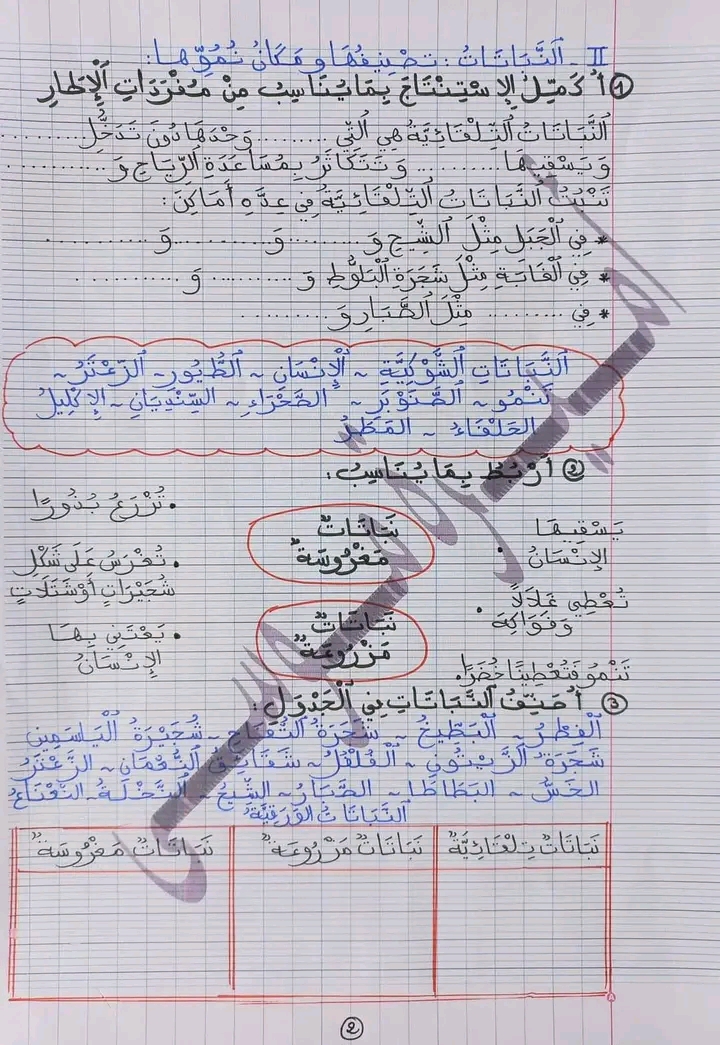 II - اَلنَّبَاتَاتُ: تَصْنِيفُهَا وَ مَكَانُ نُمُوِّهَا:
① أُكَمِّلُ الِاسْتِنْتَاجَ بِمَا يُنَاسِبُ مِنْ مُفْرَدَاتِ الْإِطَارِ
اَلنَّبَاتَاتُ التِّلْقَائِيَّةُ هِيَ الَّتِي .......... وَحْدَهَا دُونَ تَدَخُّلِ..........
وَ يَسْقِيهَا .......... وَ تَتَكَاثَرُ بِمُسَاعَدَةِ الرِّيَاحِ وَ ..........
تَنْبُتُ النَّبَاتَاتُ التِّلْقَائِيَّةُ فِي عِدَّةِ أَمَاكِنَ:
* فِي الْجَبَلِ مِثْلَ الشِّيحِ وَ ..........وَ..........وَ..........
* فِي الْغَابَةِ مِثْلَ شَجَرَةِ الْبَلُّوطِ وَ .......... وَ ..........
* فِي .......... مِثْلَ الصَّبَّارِ وَ ..........
اَلنَّبَاتَاتِ الشَّوْكِيَّةِ ~ الْإِنْسَانِ ~ الطُّيُورِ ~ الزَّعْتَرُ ~
تَنْمُو ~ الصَّنَوْبَرِ ~ الصَّحْرَاءِ ~ السِّنْدِيَانِ ~ الِإكْلِيلُ
الحَلْفَاءُ ~ المَطَرُ
② أَرْبُطُ بِمَا يُنَاسِبُ:
يَسْقِيهَا الإِنْسَانُ •
نَبَاتَاتٌ مَغْرُوسَةٌ
• تُزْرَعُ بُذُورًا
تُعْطِي غَلَالًا وَ فَوَاكِهَ •
نَبَاتَاتٌ مَزْرُوعَةٌ
• تُغْرَسُ عَلَى شَكْلِ شُجَيْرَاتٍ أَوْ شَتَلَاتٍ
تَنْمُو فَتُعْطِينَا خُضَرًا •
• يَعْتَنِي بِهَا الإِنْسَانُ
③ أُصَنِّفُ النَّبَاتَاتِ فِي الْجَدْوَلِ:
الْفِطْرُ ~ الْبَطِّيخُ ~ شَجَرَةُ التُّفَّاحِ ~ شُجَيْرَةُ الْيَاسَمِينِ
شَجَرَةُ الزَّيْتُونِ ~ الْفُلْفُلُ ~ شَقَائِقُ النُّعْمَانِ ~ الزَّعْتَرُ
الخَسُّ ~ البَطَاطَا ~ الصَّبَّارُ ~ الشِّيحُ ~ النَّخْلَةُ ~ النَّعْنَاعُ
النَّبَاتَاتُ الوَرَقِيَّةُ
نَبَاتَاتٌ تِلْقَائِيَّةٌ
نَبَاتَاتٌ مَزْرُوعَةٌ
نَبَاتَاتٌ مَغْرُوسَةٌ
②